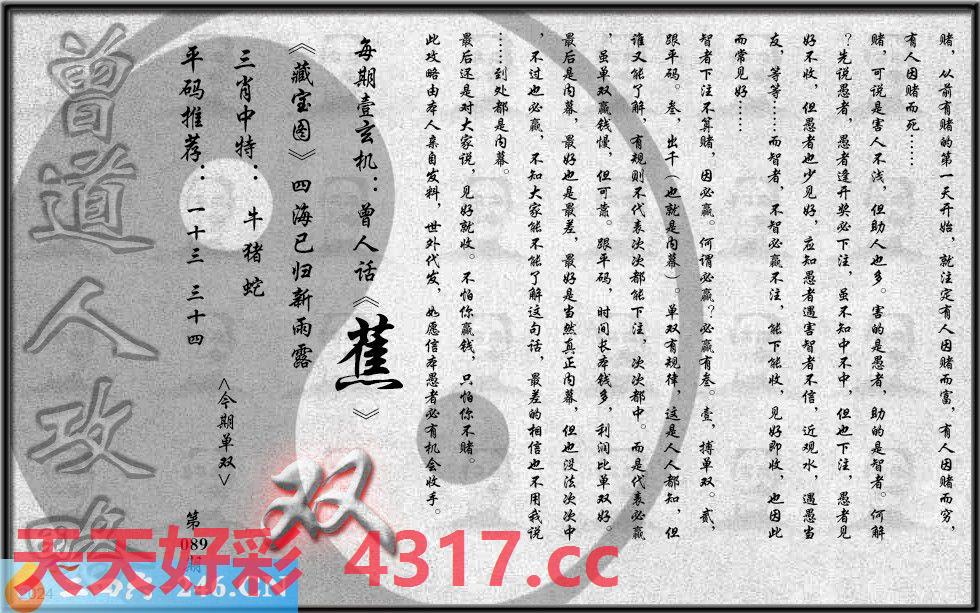 赌，从前有赌的第一天开始，就注定有人因赌而富，有人因赌而穷，
有人因赌而死……
赌，可说是害人不浅，但助人也多。害的是愚者，助的是智者。何解
？先说愚者，愚者逢开奖必下注，虽不知中不中，但也下注，愚者见
好不收，但愚者也少见好，应知愚者遇害智者不信，近观水，遇愚当
友，等等……而智者，不智必赢不注，能下能收，见好即收，也因此
而常见好……
智者下注不算赌，因必赢。何谓必赢？必赢有叁。壹，搏单双。贰，
跟平码。叁，出千（也就是内幕）。单双有规律，这是人人都知，但
谁又能了解，有规则不代表次次都能下注，次次都中。而是代表必赢
，虽单双赢钱慢，但可靠。跟平码，时间长本钱多，利润比单双好。
最后是内幕，最好也是最差，最好是当然真正内幕，但也没法次次中
，不过也必赢，不知大家能不能了解这句话，最差的相信也不用我说
……到处都是内幕。
最后还是对大家说，见好就收。不怕你赢钱，只怕你不赌。
此攻略由本人亲自发料，世外代发，如愿信本愚者必有机会收手。
每期壹玄机：曾人话《蕉》
《藏宝图》四海已归新雨露
三肖中特：牛猪蛇
平码推荐：一十三 三十四
<今期单双>
双
第
089
期
曾道人攻略
天天好彩 4317.cc
246.CN
2024